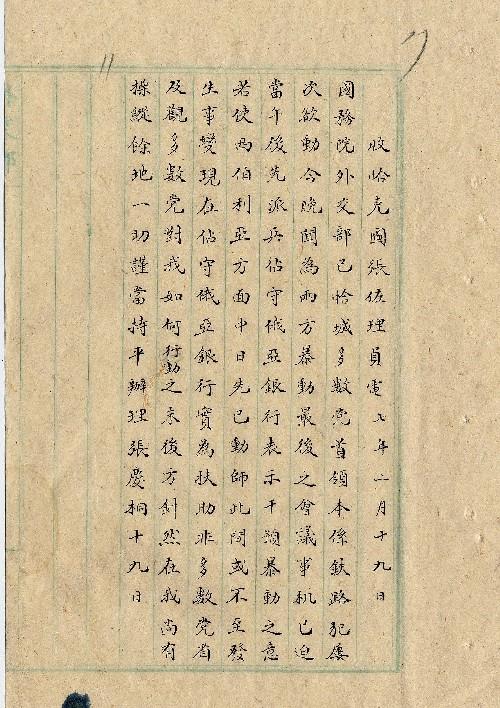 收恰克圖張佐理員電七年二月十九日
國務院外交部巳恰城多數党首領本係鉄路犯屢
次欲動今晚闻為兩方暴動最後之會議事机已迫
當午後先派兵佔守俄亞銀行表示干預暴動之意
若使西伯利亞方面中日先已動師此間或不至發
生事變現在佔守俄亞銀行實為扶助非多數党省
及觀多數党對我如何行動之末後方針然在我尚有
操縱餘地一切謹當持平辦理張慶桐十九日